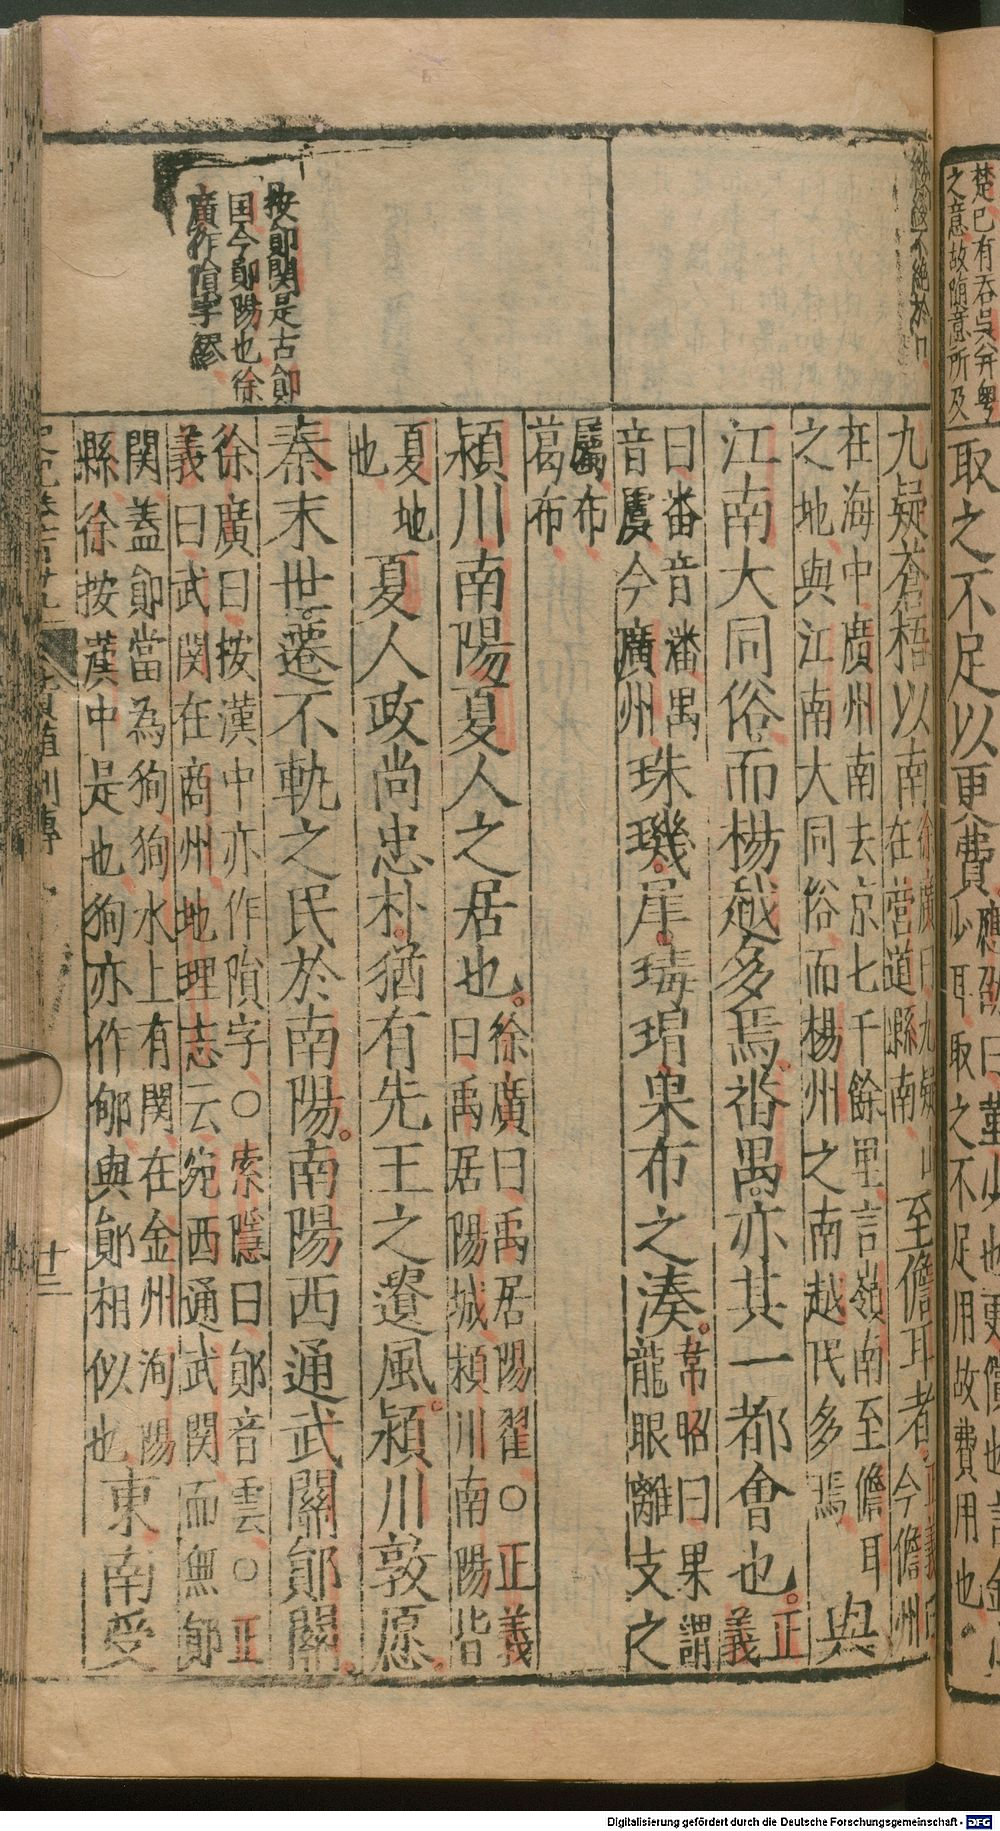 楚已有吞吳并粵
之意故隨意所及
取之不足以更費
應劭曰菫少也更償也言金
少耳取之不足用故費用也
不絶於口
按鄖関是古鄖
国今鄖陽也徐
廣作隕字繆
九疑蒼梧以南
徐廣曰九疑山
在營道縣南
至儋耳者
正義曰
今儋州
在海中廣州南去京七千餘里言嶺南至儋耳
之地與江南大同俗而楊州之南越民多焉
與
江南大同俗而楊越多焉番禺亦其一都會也
正
義
曰番音潘禺
音虞今廣州
珠璣犀瑇瑁果布之湊
韋昭曰果謂
龍眼離支之
屬布
葛布
潁川南陽夏人之居也
徐廣曰禹居陽翟○正義
曰禹居陽城潁川南陽皆
夏地
也
夏人政尚忠朴猶有先王之遺風潁川敦愿
秦末世遷不軌之民於南陽南陽西通武關鄖關
徐廣曰按漢中亦作隕字○索隱曰鄖音雲○正
義曰武関在商州地理志云宛西通武関而無鄖
関蓋鄖當為狥狥水上有関在金州洵陽
縣徐按漢中是也狥亦作郇與鄖相似也
東南受
十三
Digitalisierung gefördert durch die Deutsche Forschungsgemeinschaft - DFG